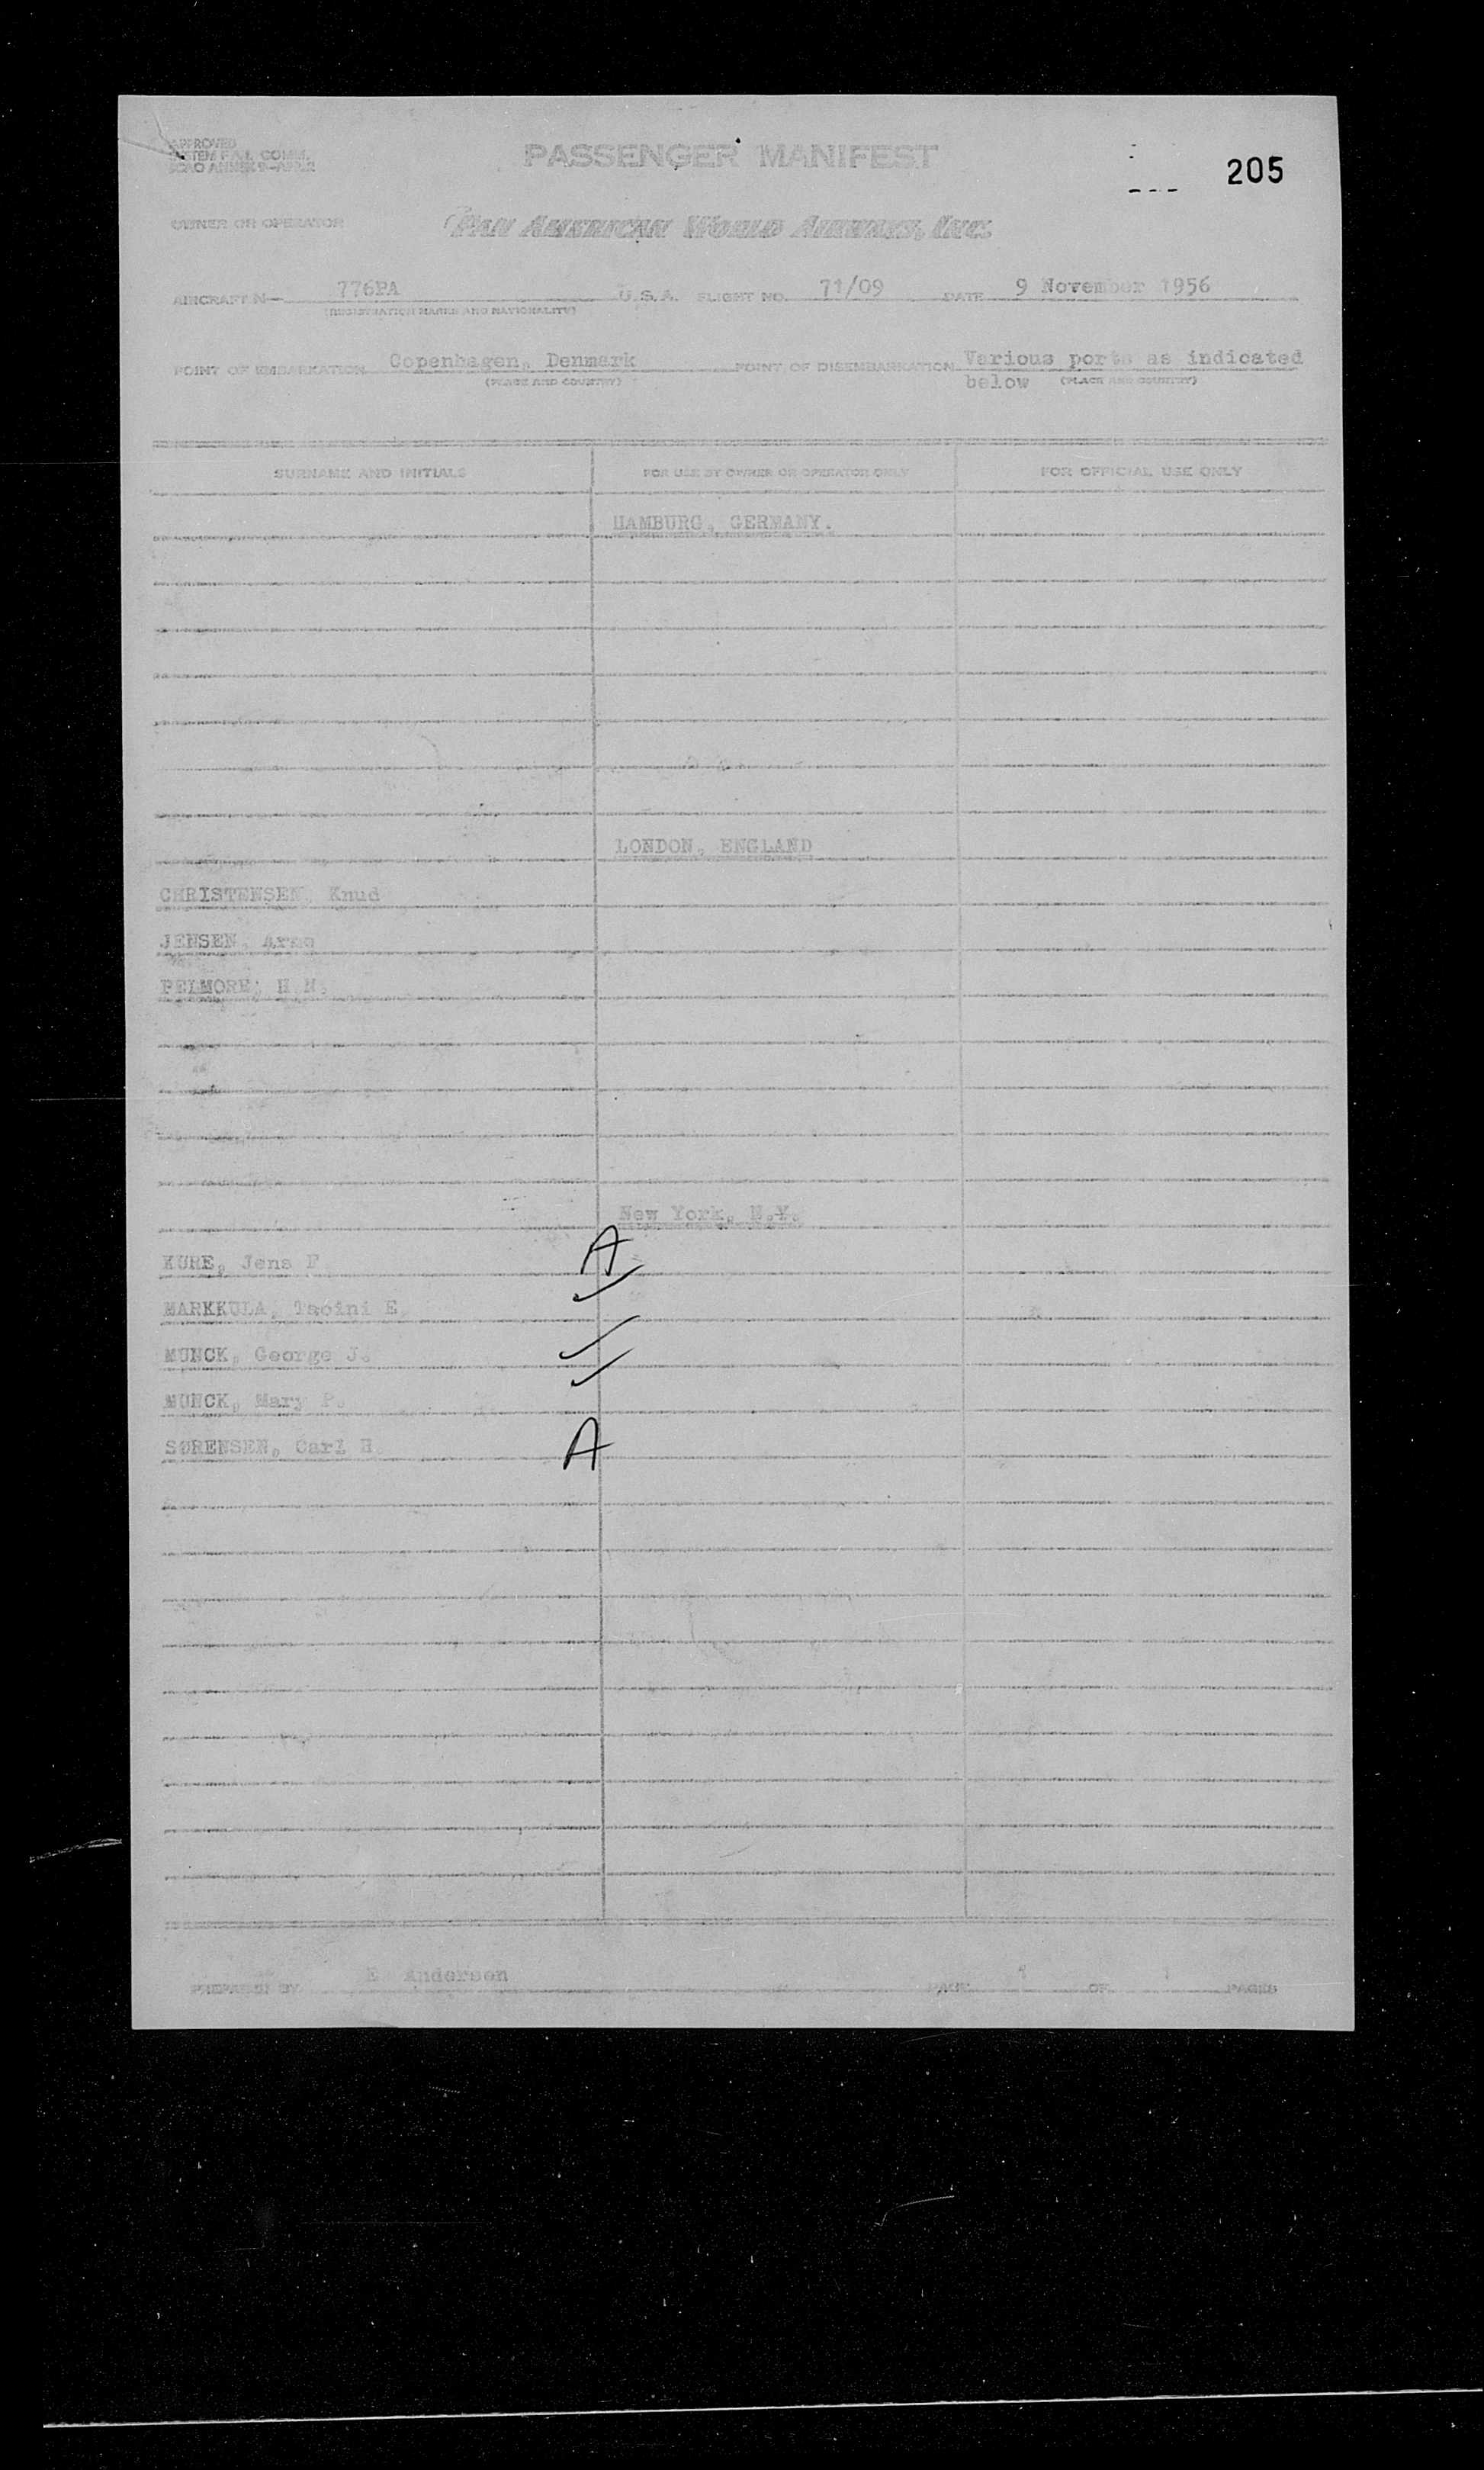 APPROVED
SYSTEM F.A.L. COMM.
ICAO ANNEX 9-APP. 2
PASSENGER MANIFEST
205
OWNER OR OPERATOR
PAN AMERICAN WORLD AIRWAYS, INC.
AIRCRAFT N— 776PA U.S.A. FLIGHT NO. 71/09 DATE 9 November 1956
(REGISTRATION MARKS AND NATIONALITY)
POINT OF EMBARKATION Copenhagen, Denmark POINT OF DISEMBARKATION Various ports as indicated
(PLACE AND COUNTRY) below (PLACE AND COUNTRY)
SURNAME AND INITIALS FOR USE BY OWNER OR OPERATOR ONLY FOR OFFICIAL USE ONLY
HAMBURG, GERMANY.
LONDON, ENGLAND
CHRISTENSEN, Knud
JENSEN,
PELMORE, H.N.
New York, N.Y.
KURE, Jens F A
MARKKULA, E.
MUNCK, George J.
MUNCK, Mary P.
SØRENSEN, Carl H. A
PREPARED BY E Anderson PAGE 1 OF 1 PAGES